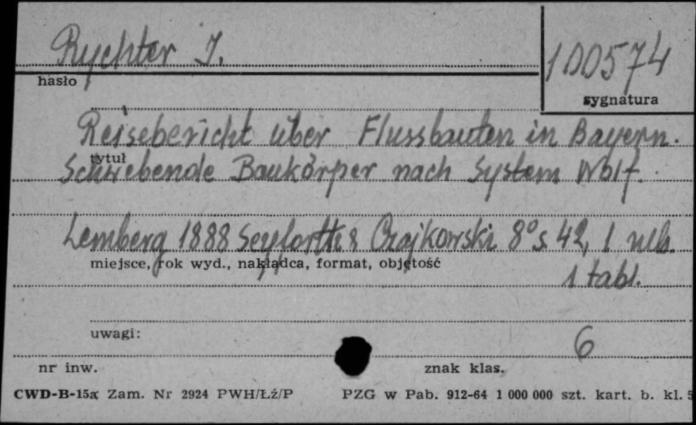 Rychter J.
100574
hasło
sygnatura
Reisebericht über Flussbauten in Bayern.
tytuł
Schwebende Baukörper nach System Wolf.
Lemberg 1888 Seyfarth & Czajkowski 8° s. 42, 1 nlb.
miejsce, rok wyd., nakładca, format, objętość
1 tabl.
uwagi:
6
nr inw.
znak klas.
CWD-B-15a Zam. Nr 2924 PWH/Łź/P PZG w Pab. 912-64 1 000 000 szt. kart. b. kl. 5